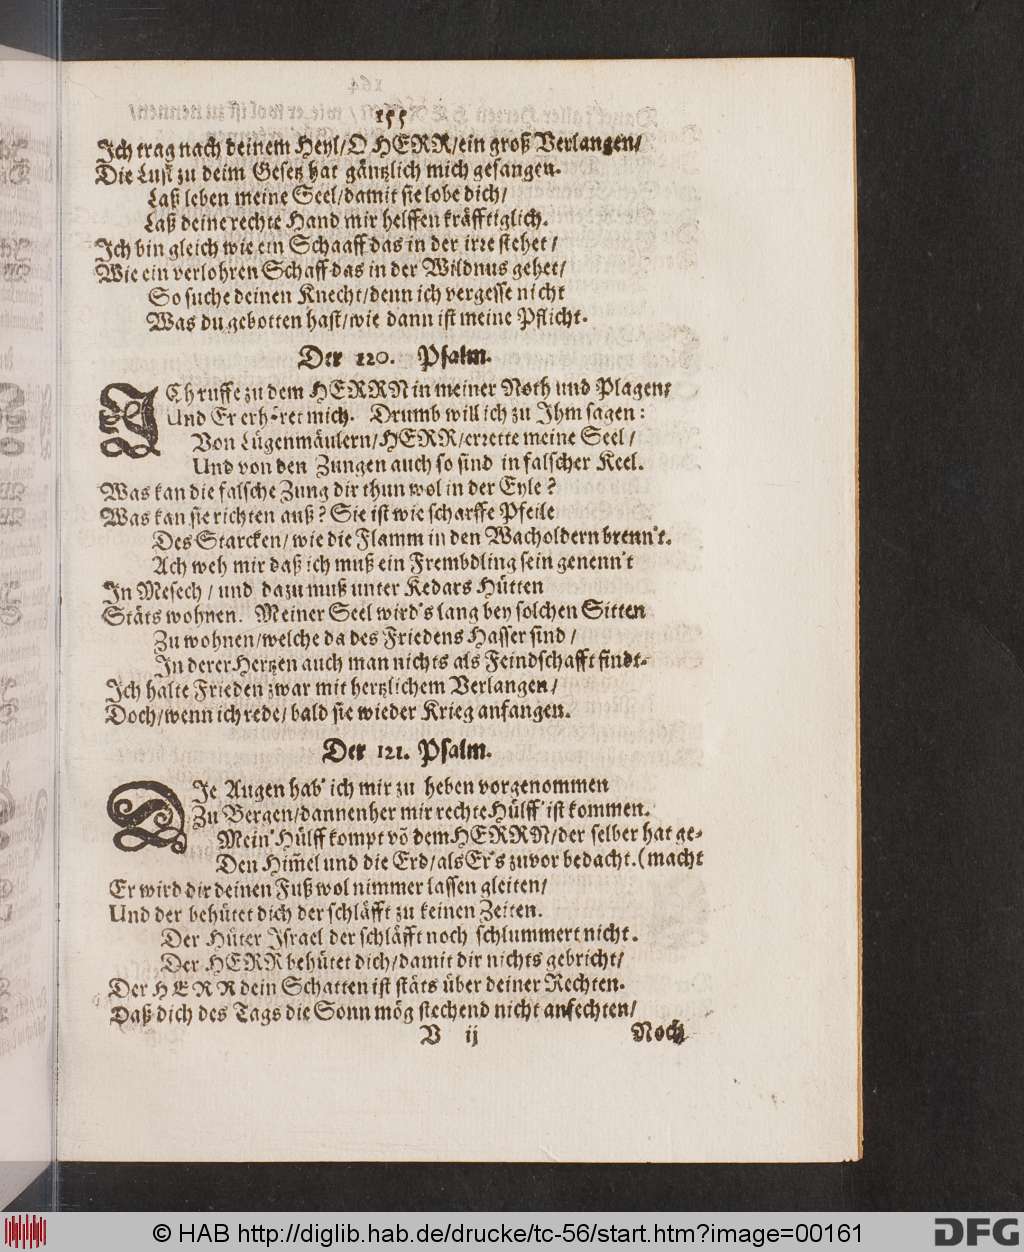 155
Ich trag nach deinem Heyl/ O HERR/ ein groß Verlangen/
Die Lust zu deim Gesetz hat gäntzlich mich gefangen.
Laß leben meine Seel/ damit sie lobe dich/
Laß deine rechte Hand mir helffen kräfftiglich.
Ich bin gleich wie ein Schaaff das in der irre stehet/
Wie ein verlohren Schaff das in der Wildnus gehet/
So suche deinen Knecht/ denn ich vergesse nicht
Was du gebotten hast/ wie dann ist meine Pflicht.
Der 120. Psalm.
ICh ruffe zu dem HERRN in meiner Noth und Plagen/
Und Er erhöret mich. Drumb will ich zu Ihm sagen:
Von Lügenmäulern/ HERR/ errette meine Seel/
Und von den Zungen auch so sind in falscher Keel.
Was kan die falsche Zung dir thun wol in der Eyle?
Was kan sie richten auß? Sie ist wie scharffe Pfeile
Des Starcken/ wie die Flamm in den Wacholdern brenn't.
Ach weh mir daß ich muß ein Frembdling sein genenn't
In Mesech/ und dazu muß unter Kedars Hütten
Stäts wohnen. Meiner Seel wird's lang bey solchen Sitten
Zu wohnen/ welche da des Friedens Hasser sind/
In derer Hertzen auch man nichts als Feindschafft findt.
Ich halte Frieden zwar mit hertzlichem Verlangen/
Doch/ wenn ich rede/ bald sie wieder Krieg anfangen.
Der 121. Psalm.
DIe Augen hab' ich mir zu heben vorgenommen
Zu Bergen/ dannenher mir rechte Hülff' ist kommen.
Mein' Hülff kompt võ dem HERRN/ der selber hat ge-
Den Him̃el und die Erd/ als Er's zuvor bedacht. (macht
Er wird dir deinen Fuß wol nimmer lassen gleiten/
Und der behütet dich der schläfft zu keinen Zeiten.
Der Hüter Israel der schläfft noch schlummert nicht.
Der HERR behütet dich/ damit dir nichts gebricht/
Der HERR dein Schatten ist stäts über deiner Rechten.
Daß dich des Tags die Sonn mög stechend nicht anfechten/
V ij Noch
© HAB http://diglib.hab.de/drucke/tc-56/start.htm?image=00161
DFG